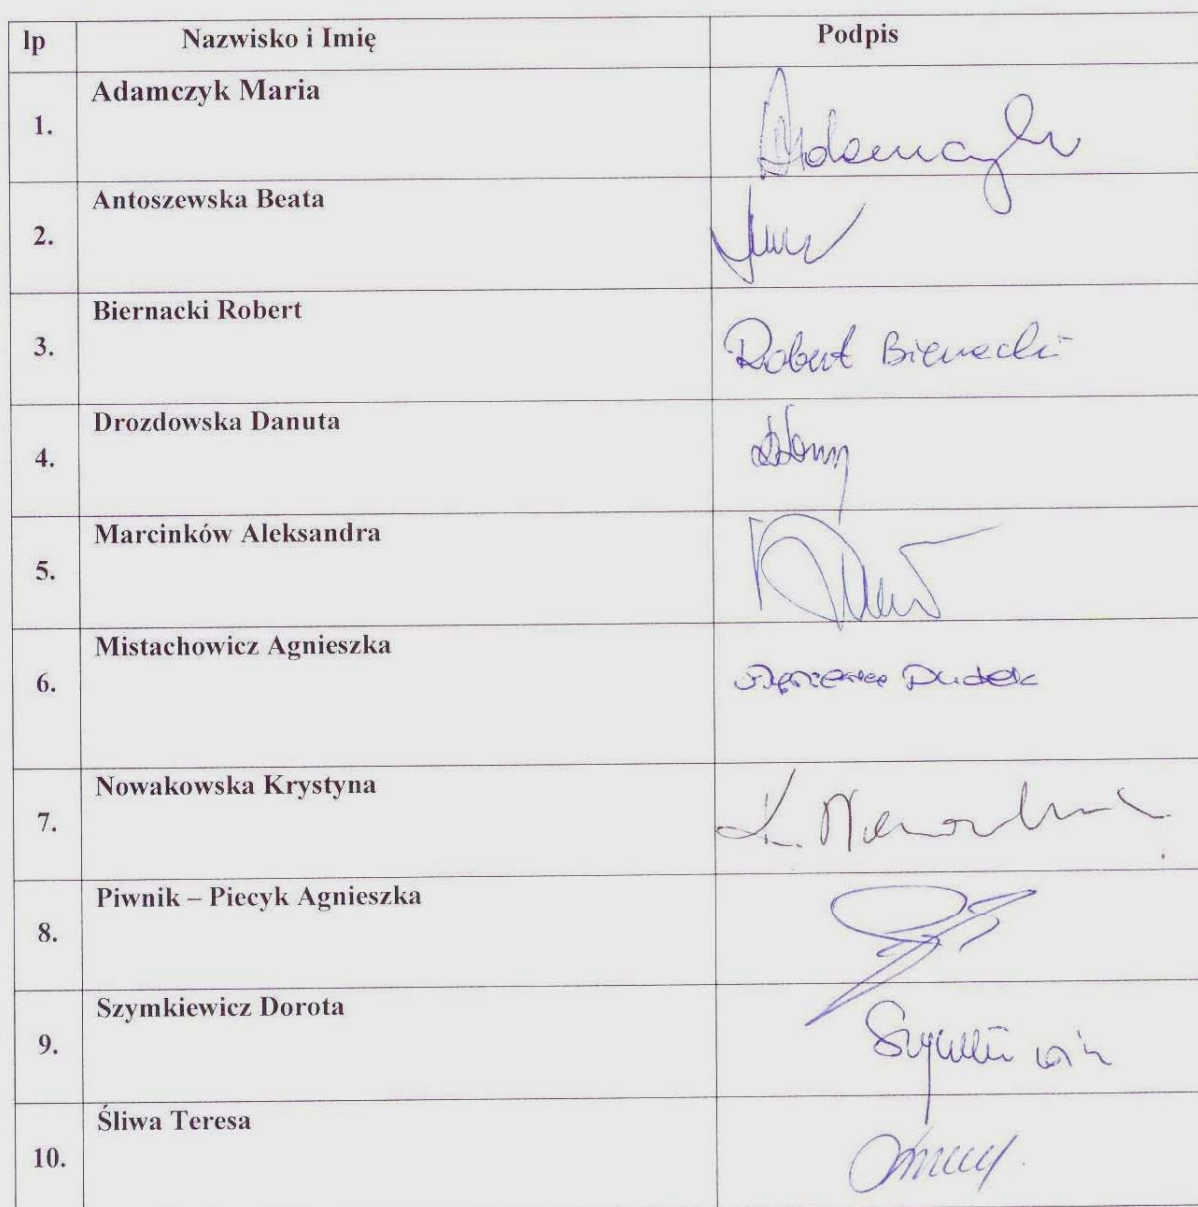 lp Nazwisko i Imię Podpis
1. Adamczyk Maria Adamczyk
2. Antoszewska Beata
3. Biernacki Robert Robert Biernacki
4. Drozdowska Danuta
5. Marcinków Aleksandra
6. Mistachowicz Agnieszka Agnieszka Dudek
7. Nowakowska Krystyna K. Nowakowska
8. Piwnik – Piecyk Agnieszka
9. Szymkiewicz Dorota
10. Śliwa Teresa